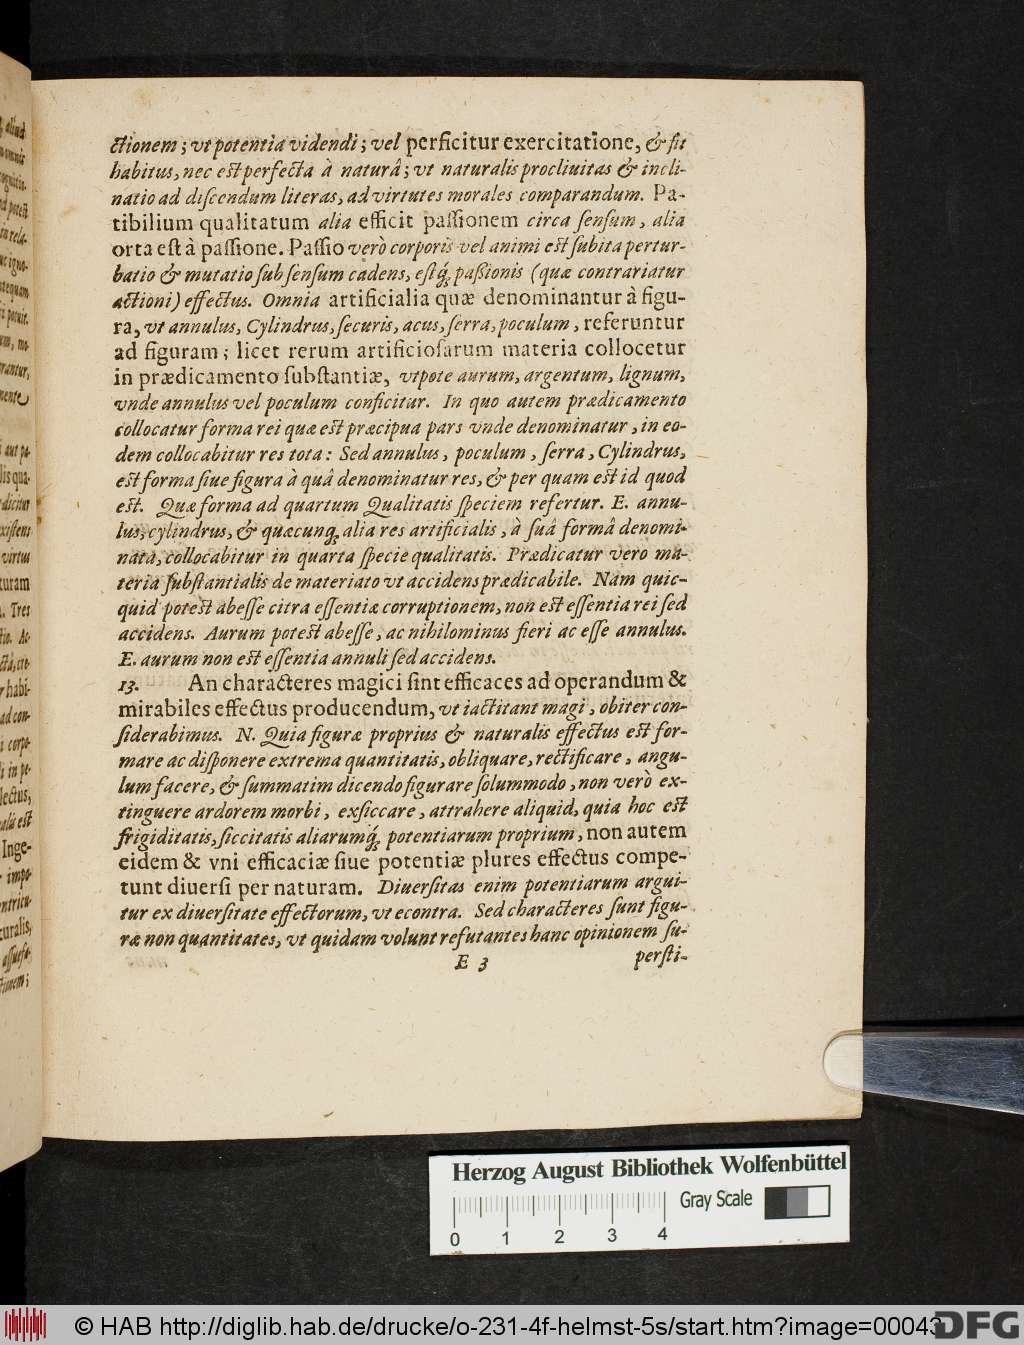 ctionem; vt potentia videndi; vel perficitur exercitatione, & fit
habitus, nec est perfecta à naturâ; vt naturalis procliuitas & incli-
natio ad discendum literas, ad virtutes morales comparandum. Pa-
tibilium qualitatum alia efficit passionem circa sensum, alia
orta est à passione. Passio verò corporis vel animi est subita pertur-
batio & mutatio sub sensum cadens, estq́; passionis (quæ contrariatur
actioni) effectus. Omnia artificialia quæ denominantur à figu-
ra, vt annulus, Cylindrus, securis, acus, serra, poculum, referuntur
ad figuram; licet rerum artificiosarum materia collocetur
in prædicamento substantiæ, vtpote aurum, argentum, lignum,
vnde annulus vel poculum conficitur. In quo autem prædicamento
collocatur forma rei quæ est præcipua pars vnde denominatur, in eo-
dem collocabitur res tota: Sed annulus, poculum, serra, Cylindrus,
est forma siue figura à quâ denominatur res, & per quam est id quod
est. Quæ forma ad quartum Qualitatis speciem refertur. E. annu-
lus, cylindrus, & quæcunq; alia res artificialis, à suâ formâ denomi-
nata, collocabitur in quarta specie qualitatis. Prædicatur vero ma-
teria substantialis de materiato vt accidens prædicabile. Nam quic-
quid potest abesse citra essentiæ corruptionem, non est essentia rei sed
accidens. Aurum potest abesse, ac nihilominus fieri ac esse annulus.
E. aurum non est essentia annuli sed accidens.
13. An characteres magici sint efficaces ad operandum &
mirabiles effectus producendum, vt iactitant magi, obiter con-
siderabimus. N. Quia figuræ proprius & naturalis effectus est for-
mare ac disponere extrema quantitatis, obliquare, rectificare, angu-
lum facere, & summatim dicendo figurare solummodo, non verò ex-
tinguere ardorem morbi, exsiccare, attrahere aliquid, quia hoc est
frigiditatis, siccitatis aliarumq́; potentiarum proprium, non autem
eidem & vni efficaciæ siue potentiæ plures effectus compe-
tunt diuersi per naturam. Diuersitas enim potentiarum argui-
tur ex diuersitate effectorum, vt econtra. Sed characteres sunt figu-
ræ non quantitates, vt quidam volunt refutantes hanc opinionem su-
E 3 persti-
Herzog August Bibliothek Wolfenbüttel
Gray Scale
0 1 2 3 4
© HAB http://diglib.hab.de/drucke/o-231-4f-helmst-5s/start.htm?image=00043
DFG